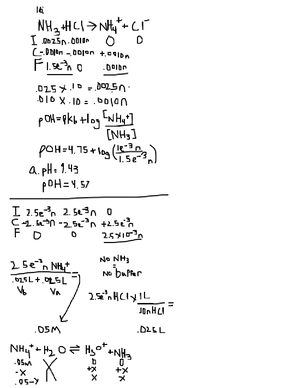 NH₃+HCl→NH₄⁺+Cl⁻
I .0025n .0010n 0 0
C -.0010n -.0010n +.0010n
F 1.5e⁻³n 0 .0010n
.025 x .10 = .0025n
.010 x .10 = .0010n
pOH=pkb+log [NH₄⁺]
[NH₃]
pOH=4.75+log(1e⁻³n / 1.5e⁻³n)
a. pH=9.43
pOH=4.57
I 2.5e⁻³n 2.5e⁻³n 0
C -2.5e⁻³n -2.5e⁻³n +2.5e⁻³n
F 0 0 2.5x10⁻³n
2.5e⁻³n NH₄⁺ =
.025L + .025L
Vb Va
No NH₃
=
No buffer
2.5e⁻³nHCl x 1L =
.10nHCl
.05M .025L
NH₄⁺+H₂O⇌H₃O⁺+NH₃
.05M 0 0
-x +x +x
.05-x x x